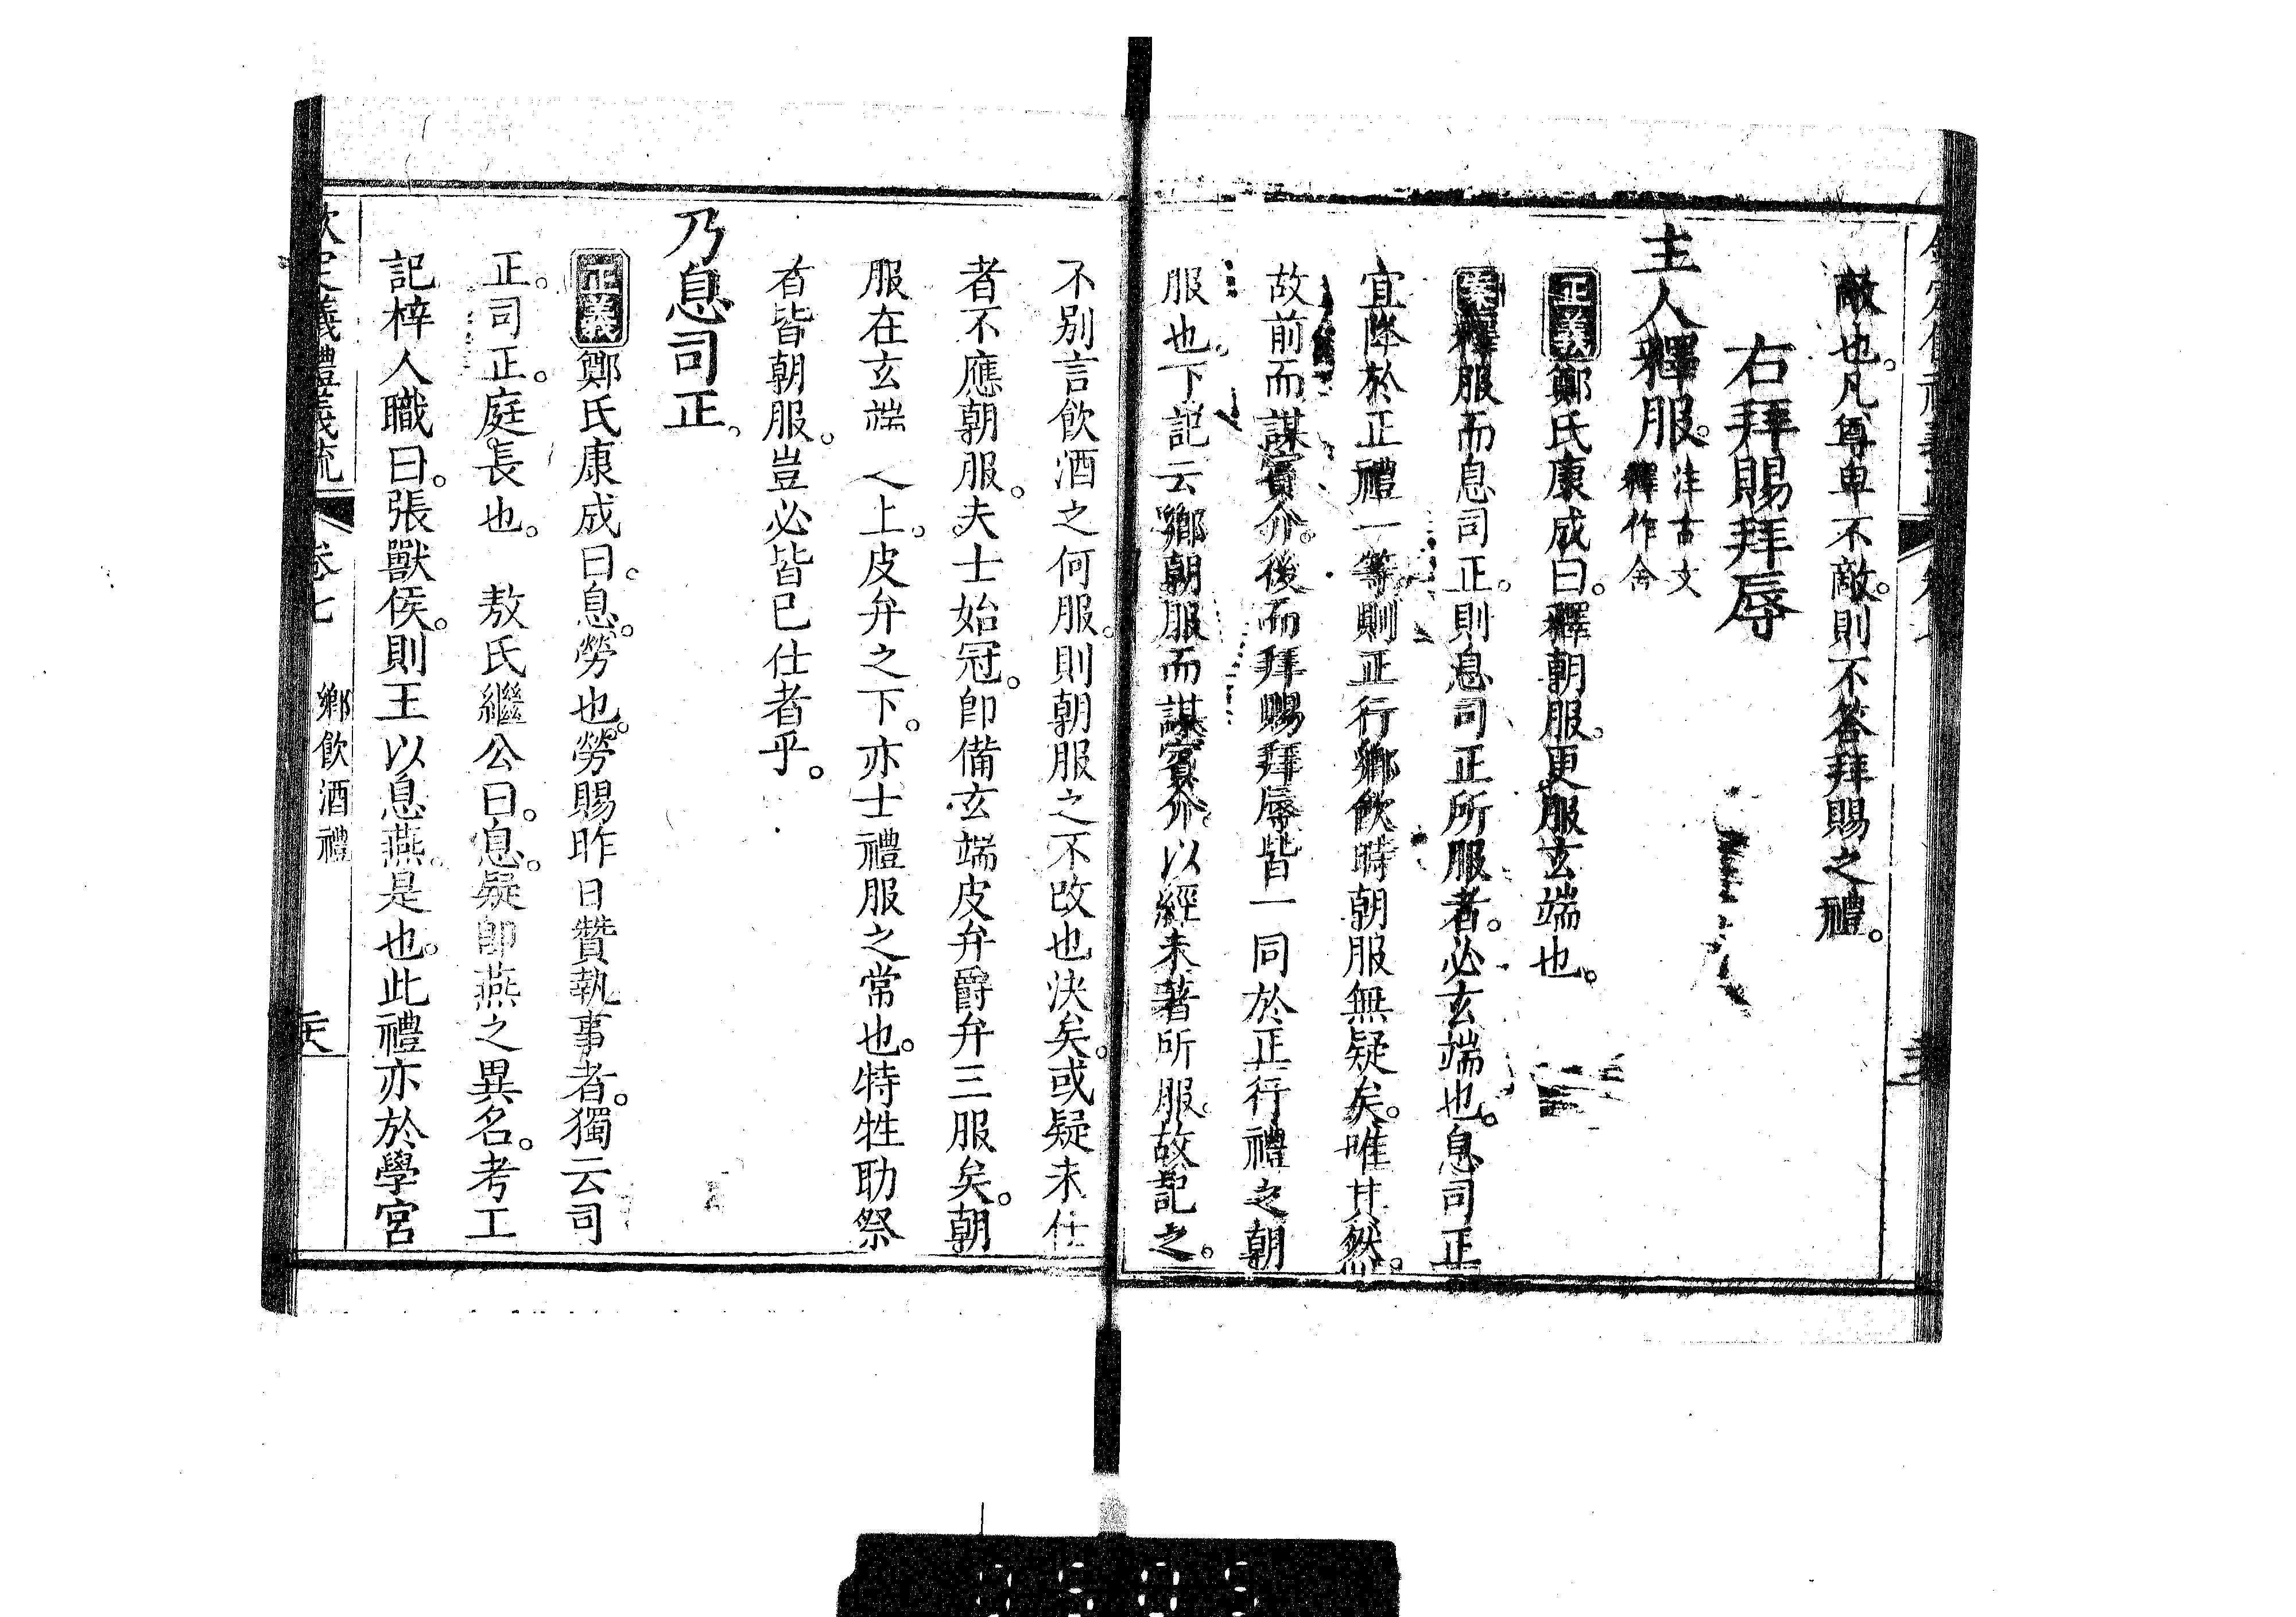 敵也。凡尊卑不敵。則不答拜賜之禮。
右拜賜拜辱
主人釋服。注古文釋作舍
正義鄭氏康成曰。釋朝服。更服玄端也。
案釋服而息司正。則息司正所服者。必玄端也。息司正
宜降於正禮一等。則正行鄉飲時朝服無疑矣。唯其然。
故前而謀賓介。後而拜賜拜辱皆一同於正行禮之朝
服也。下記云鄉朝服而謀賓介。以經未著所服。故記之。
不別言飲酒之何服。則朝服之不改也決矣。或疑未仕
者不應朝服。夫士始冠。即備玄端皮弁爵弁三服矣。朝
服在玄端之上。皮弁之下。亦士禮服之常也。特牲助祭
者皆朝服。豈必皆已仕者乎。
乃息司正。
正義鄭氏康成曰。息。勞也。勞賜昨日贊執事者。獨云司
正。司正。庭長也。 敖氏繼公曰。息。疑即燕之異名。考工
記梓人職曰。張獸侯。則王以息燕。是也。此禮亦於學宮
欽定儀禮義疏 卷七 鄉飲酒禮